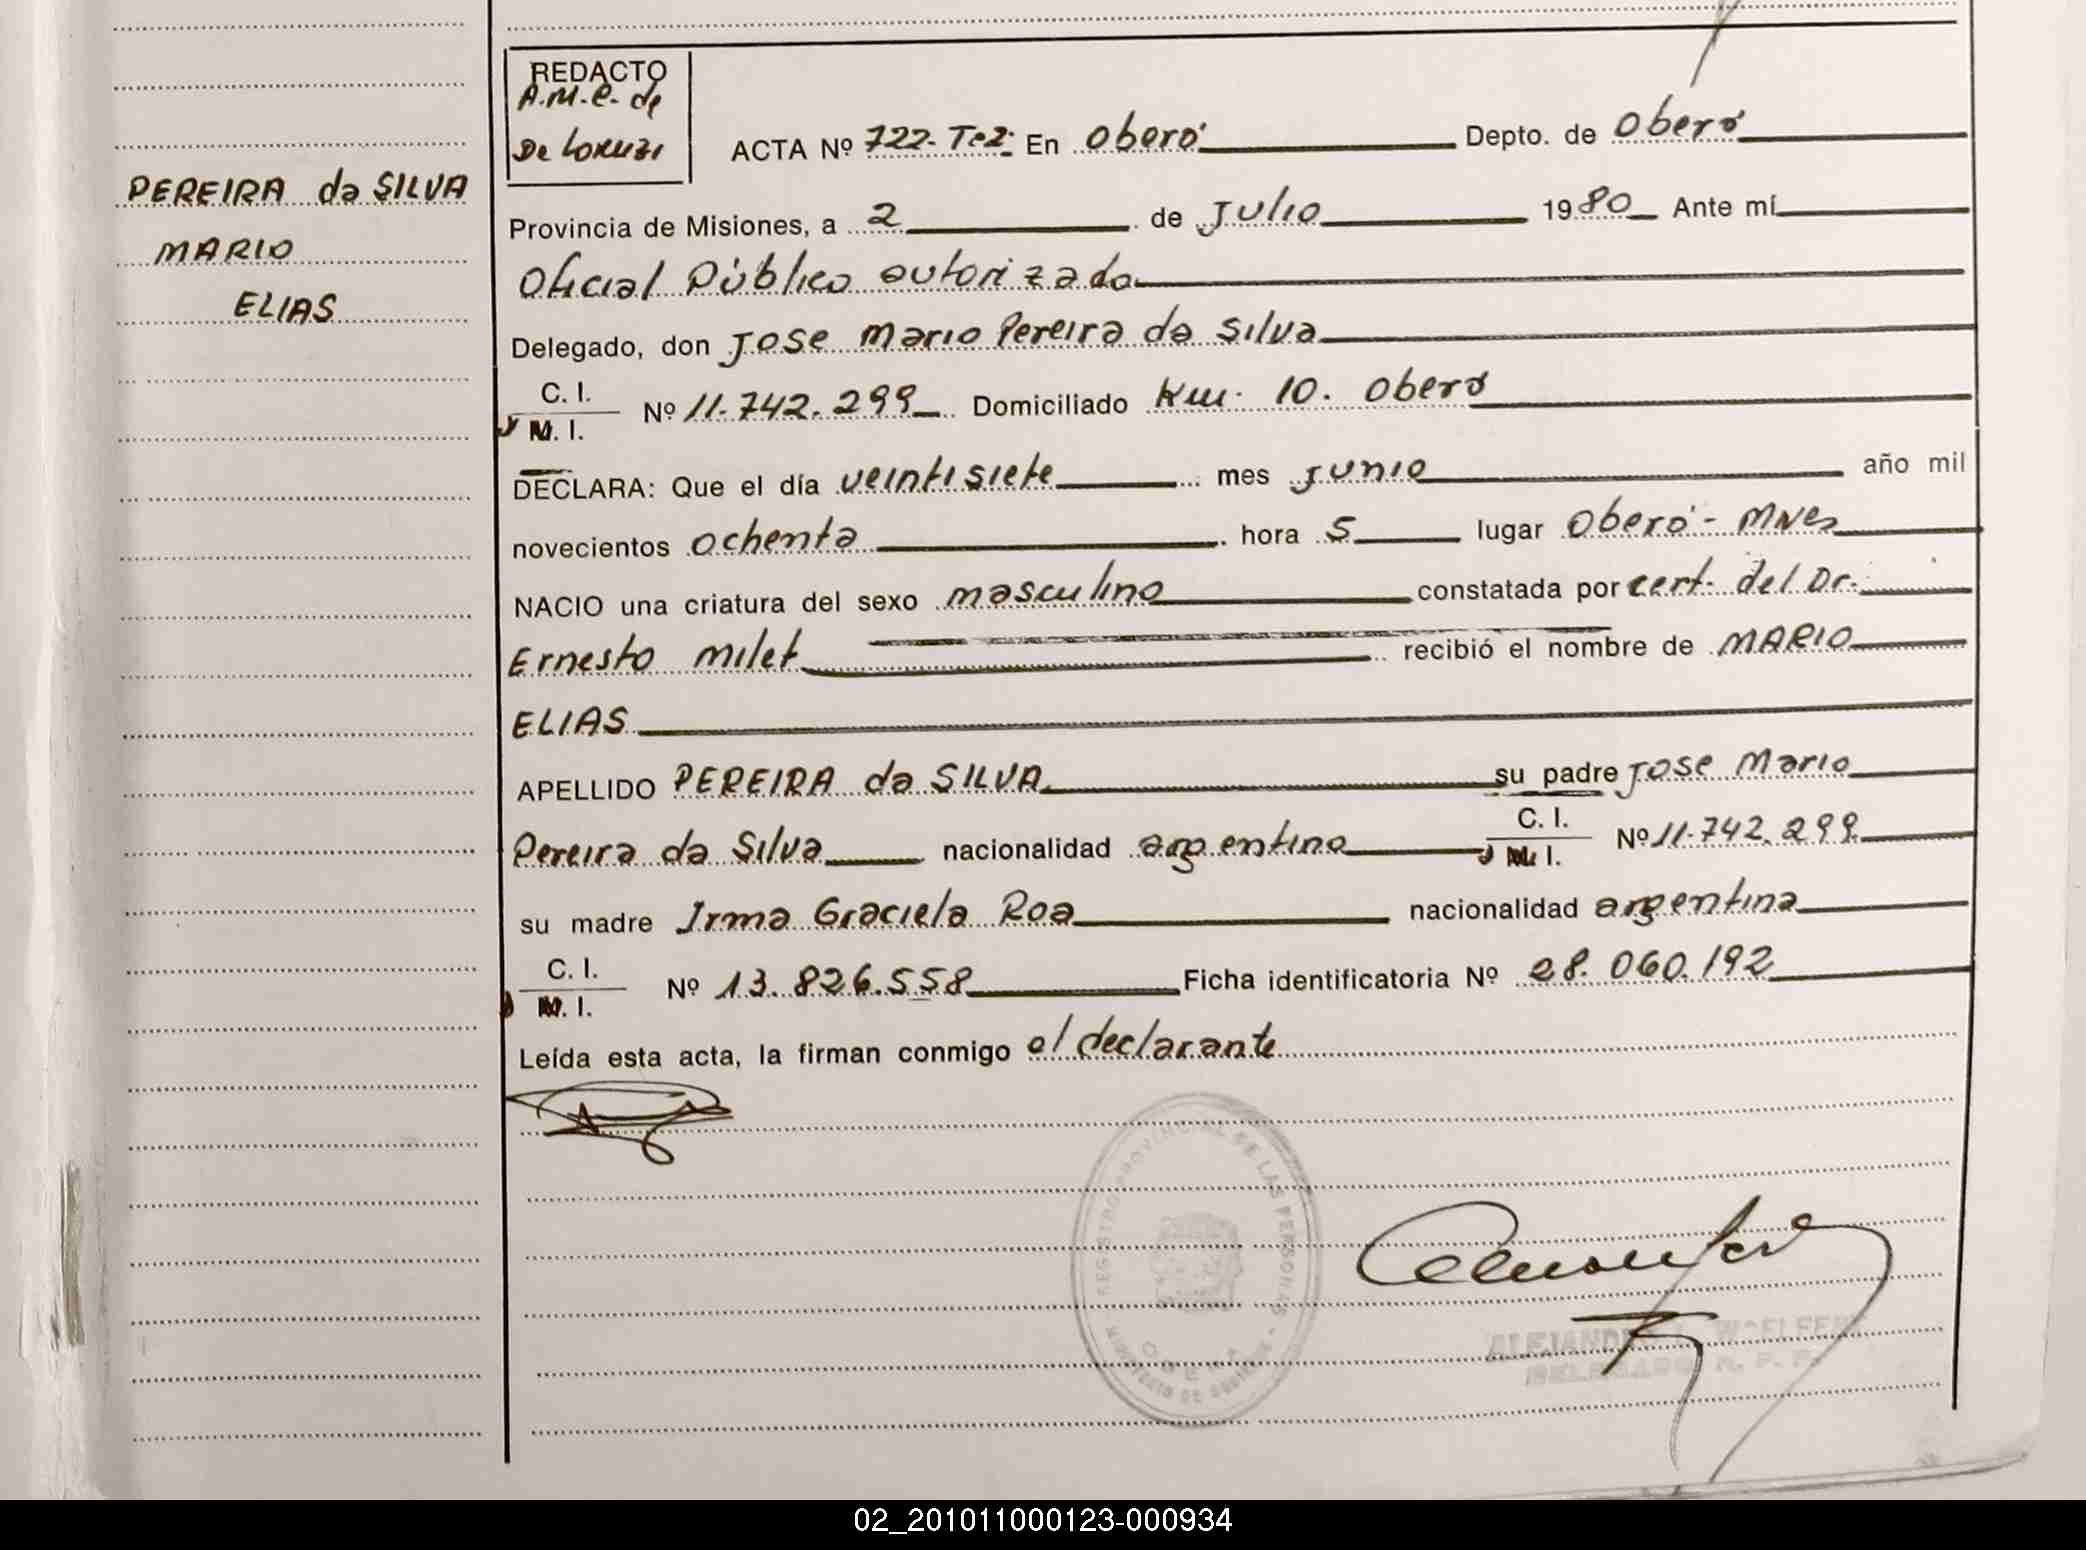 REDACTO
A.M.C. de
De Lorenzi
ACTA Nº 722- Tº2: En Oberá Depto. de Oberá
PEREIRA da SILVA
MARIO
ELIAS
Provincia de Misiones, a 2 de Julio 1980 Ante mí
Oficial Público autorizado
Delegado, don Jose Mario Pereira da Silva
C. I.
M. I.
Nº 11.742.299 Domiciliado Km. 10. Oberá
DECLARA: Que el día veintisiete mes junio año mil
novecientos ochenta hora 5 lugar Oberá - Mnes
NACIO una criatura del sexo masculino constatada por cert. del Dr.
Ernesto Milet recibió el nombre de MARIO
ELIAS
APELLIDO PEREIRA da SILVA su padre Jose Mario
Pereira da Silva nacionalidad argentina C. I.
M. I.
Nº 11.742.299
su madre Irma Graciela Roa nacionalidad argentina
C. I.
M. I.
Nº 13.826.558 Ficha identificatoria Nº 28.060.192
Leída esta acta, la firman conmigo el declarante
REGISTRO PROVINCIAL DE LAS PERSONAS
MINISTERIO DE GOBIERNO
OBERA
DELEGADO R. P. P.
02_201011000123-000934